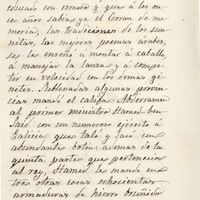 educado con esmero y que á los on-
ce años sabia ya el Coran de me-
moria, las tradiciones de los sun-
nitas, las mejores poemas árabes,
se les enseñó á montar á caballo,
á manejar la lanza y á compe-
tir en velocidad con los demas gi-
netes. Sublevadas algunas pro-
vincias mandó el califa Abderraman
al primer ministro Hamed ben
Said con un numeroso ejército á
Galicia que taló y sacó un
abundante botin ademas de la
quinta parte que pertenecia
al rey. Hamed le mandó en-
tre otras cosas ochocientas
armaduras de hierro bruñido